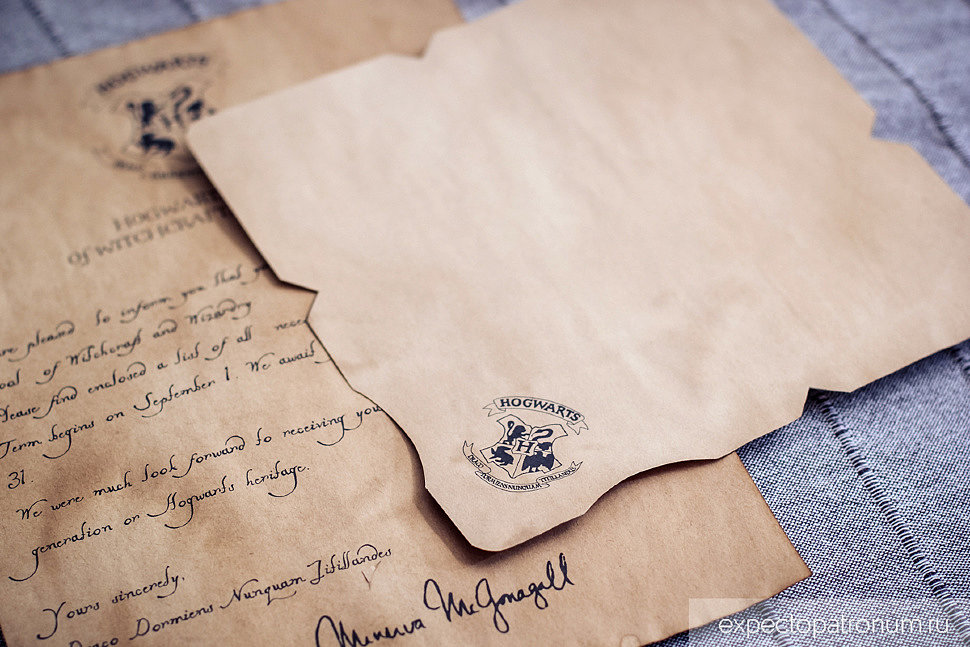 HOGWARTS
HOGWAR
of WITCHCRAFT
are pleased to inform you that yo
ool of Witchcraft and Wizardry
Please find enclosed a list of all nece
Term begins on September 1. We await
31.
We were much look forward to receiving you
generation or Hogwarts heritage.
Yours sincerely,
Draco Dormiens Nunquam Titillandus
Minerva McGonagall
HOGWARTS
H
DRACO DORMIENS NUNQUAM TITILLANDUS
expectopatronum.ru